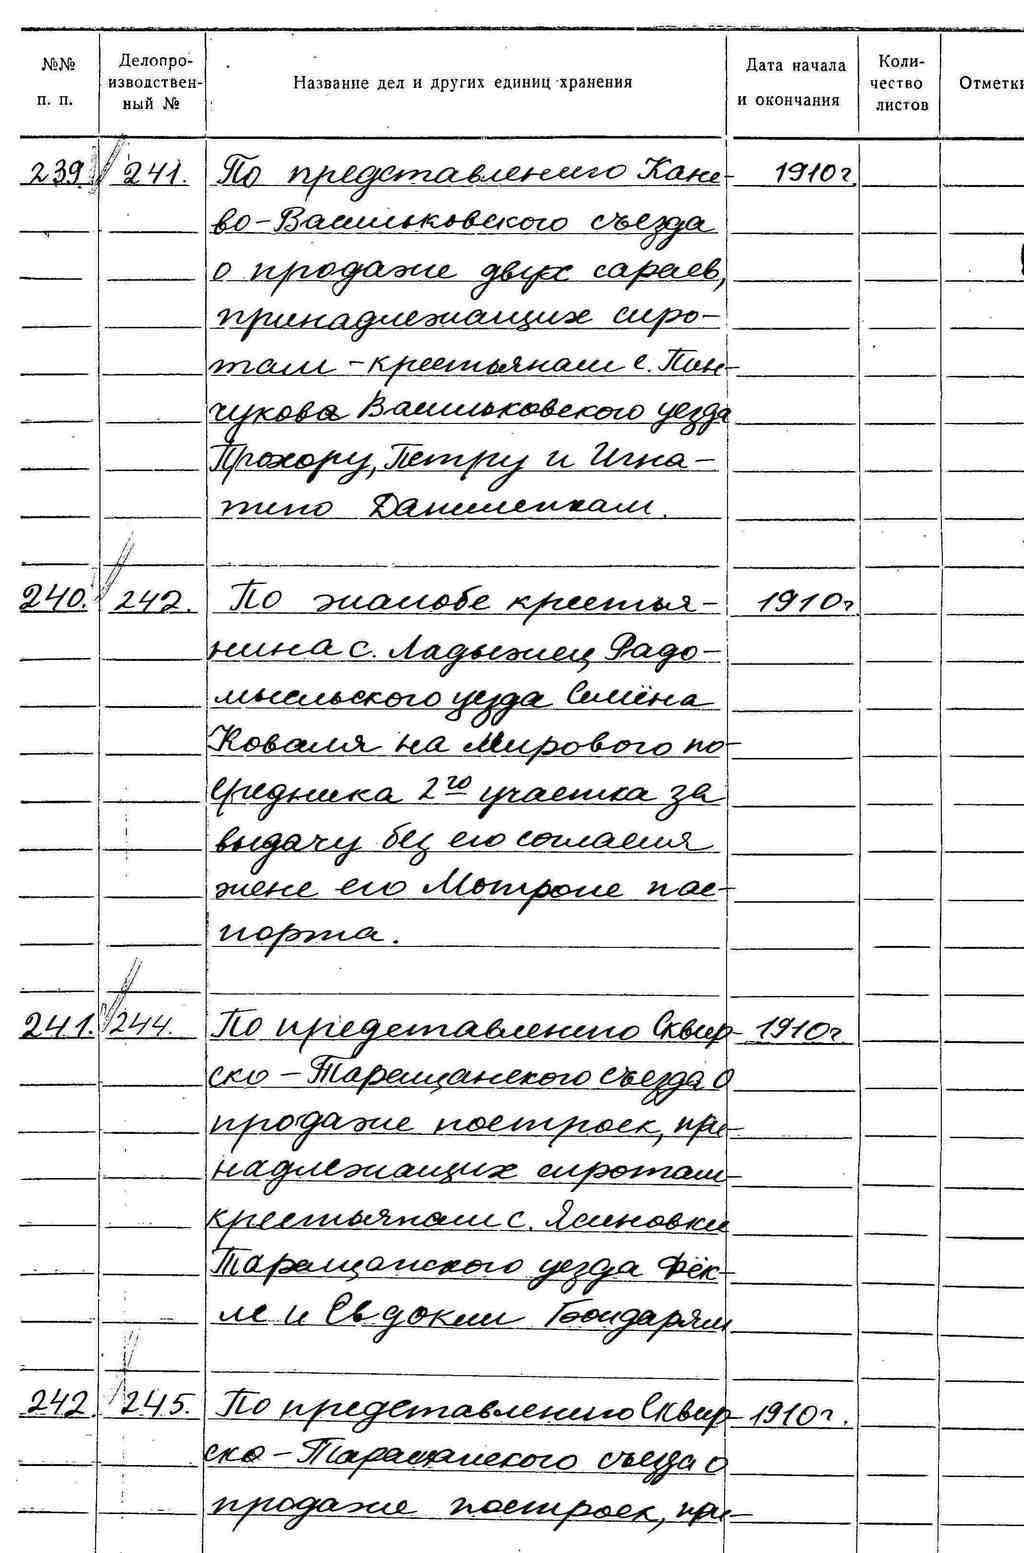 №№ п. п. Делопро-изводствен-ный № Название дел и других единиц хранения Дата начала и окончания Коли-чество листов Отметки
239. 241. По представлению Кане- 1910г.
во-Васильковского съезда
о продаже двух сараев,
принадлежащих сиро-
там - крестьянам с. Пин-
чукова Васильковского уезда
Прохору, Петру и Игна-
тию Даниленкам.
240. 242. По жалобе крестья- 1910г.
нина с. Ладыжец Радо-
мысльского уезда Семёна
Коваля на Мирового по-
средника 2го участка за
выдачу без его согласия
жене его Мотроне пас-
порта.
241. 244. По представлению Сквир- 1910г.
ско-Таращанского съезда о
продаже построек, при-
надлежащих сиротам-
крестьянам с. Ясиновки
Таращанского уезда Фёк-
ле и Евдокии Бондарям
242. 245. По представлению Сквир- 1910г.
ско-Таращанского съезда о
продаже построек, при-